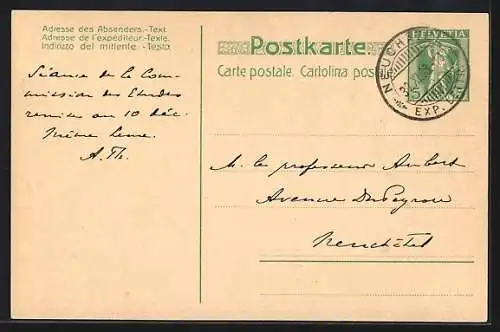 Adresse des Absenders.-Text.
Adresse de l'expéditeur.-Texte.
Indirizzo del mittente.-Testo.
Postkarte.
Carte postale. Cartolina pos
HELVETIA
5
NEUCH
EXP. LETT.
Séance de la Com-
mission des Etudes
remise au 10 déc.
Même heure.
A. Th.
M. le professeur Aubert
Avenue DuPeyrou
Neuchâtel